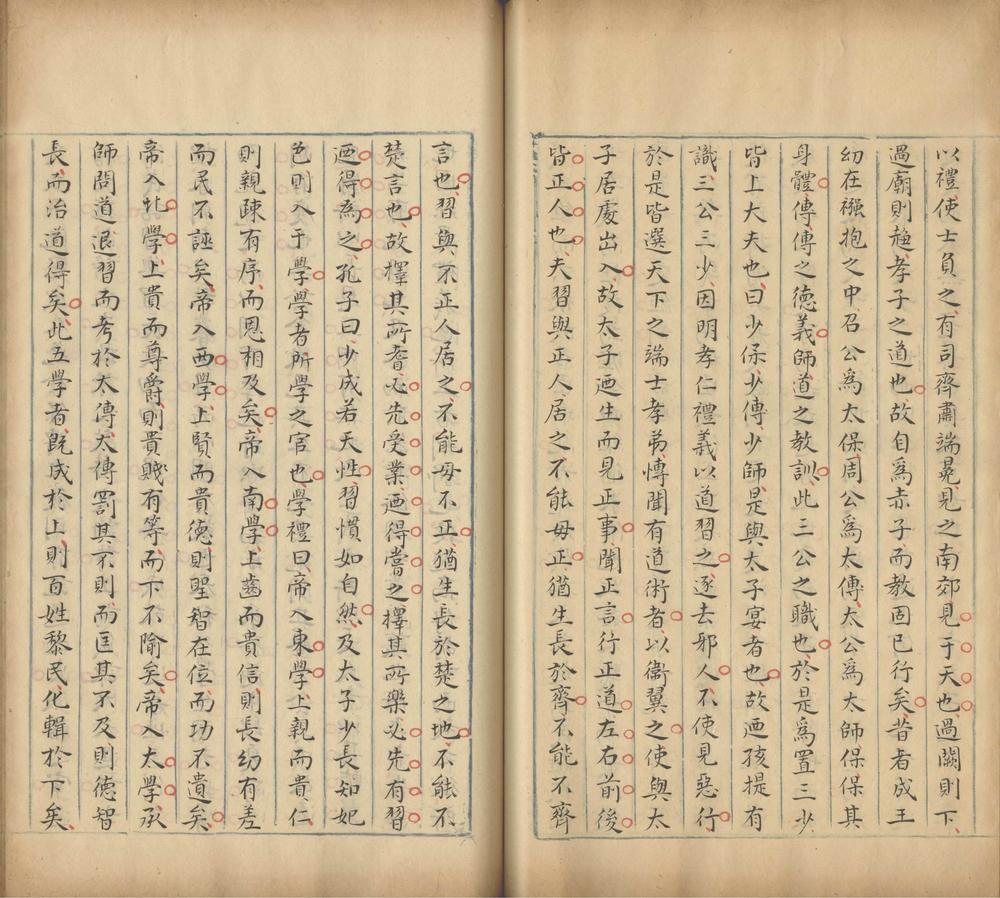 以禮使士負之有司齊肅端冕見之南郊見于天也過闕則下
過廟則趨孝子之道也故自為赤子而教固已行矣昔者成王
幼在襁抱之中召公為太保周公為太傅太公為太師保保其
身體傅傅之德義師道之教訓此三公之職也於是為置三少
皆上大夫也曰少保少傅少師是與太子宴者也故迺孩提有
識三公三少因明孝仁禮義以道習之逐去邪人不使見惡行
於是皆選天下之端士孝弟愽聞有道術者以衞翼之使與太
子居處出入故太子迺生而見正事聞正言行正道左右前後
皆正人也夫習與正人居之不能毋正猶生長於齊不能不齊
言也習與不正人居之不能毋不正猶生長於楚之地不能不
楚言也故擇其所耆必先受業迺得嘗之擇其所樂必先有習
迺得為之孔子曰少成若天性習慣如自然及太子少長知妃
色則入于學學者所學之官也學禮曰帝入東學上親而貴仁
則親疎有序而恩相及矣帝入南學上齒而貴信則長幼有差
而民不誣矣帝入西學上賢而貴德則聖智在位而功不遺矣
帝入北學上貴而尊爵則貴賤有等而下不隃矣帝入太學承
師問道退習而考於太傅太傅罰其不則而匡其不及則德智
長而治道得矣此五學者既成於上則百姓黎民化輯於下矣